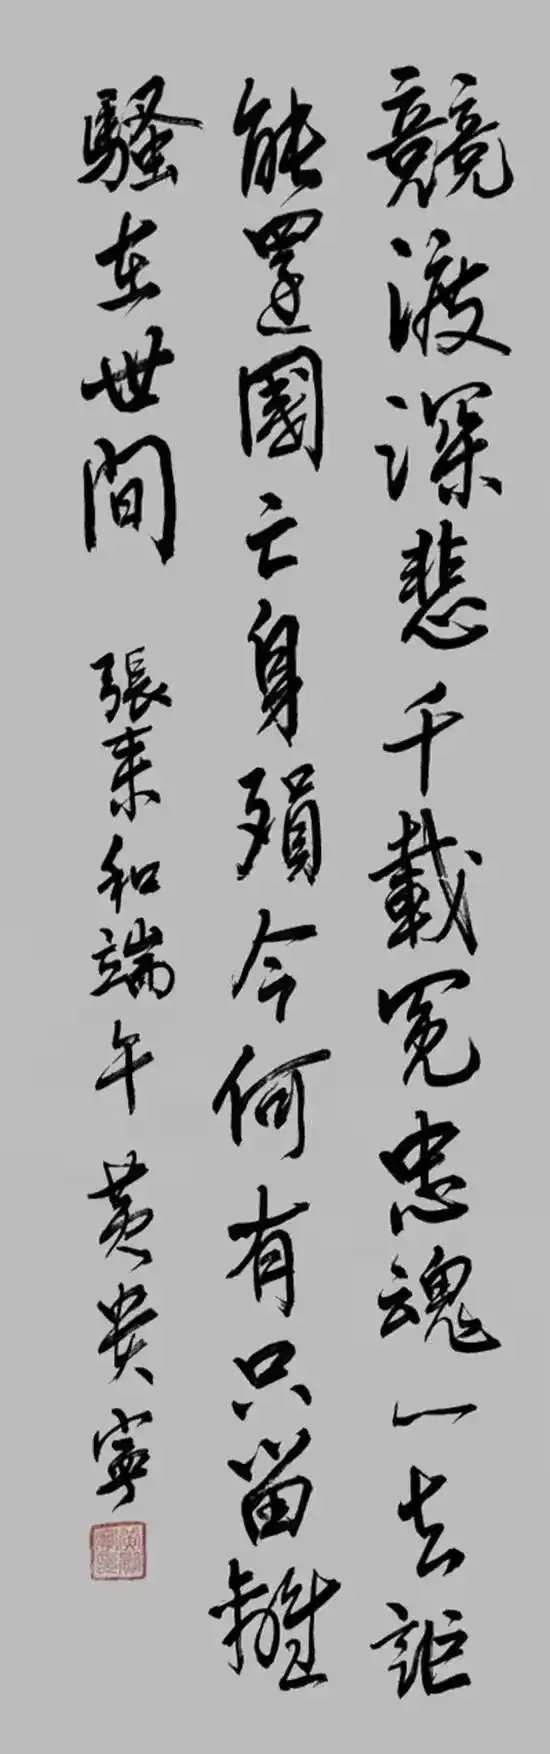 競渡深悲千載冤忠魂一去詎
能還國亡身殞今何有只留離
騷在世間 張耒和端午 黃貴寧